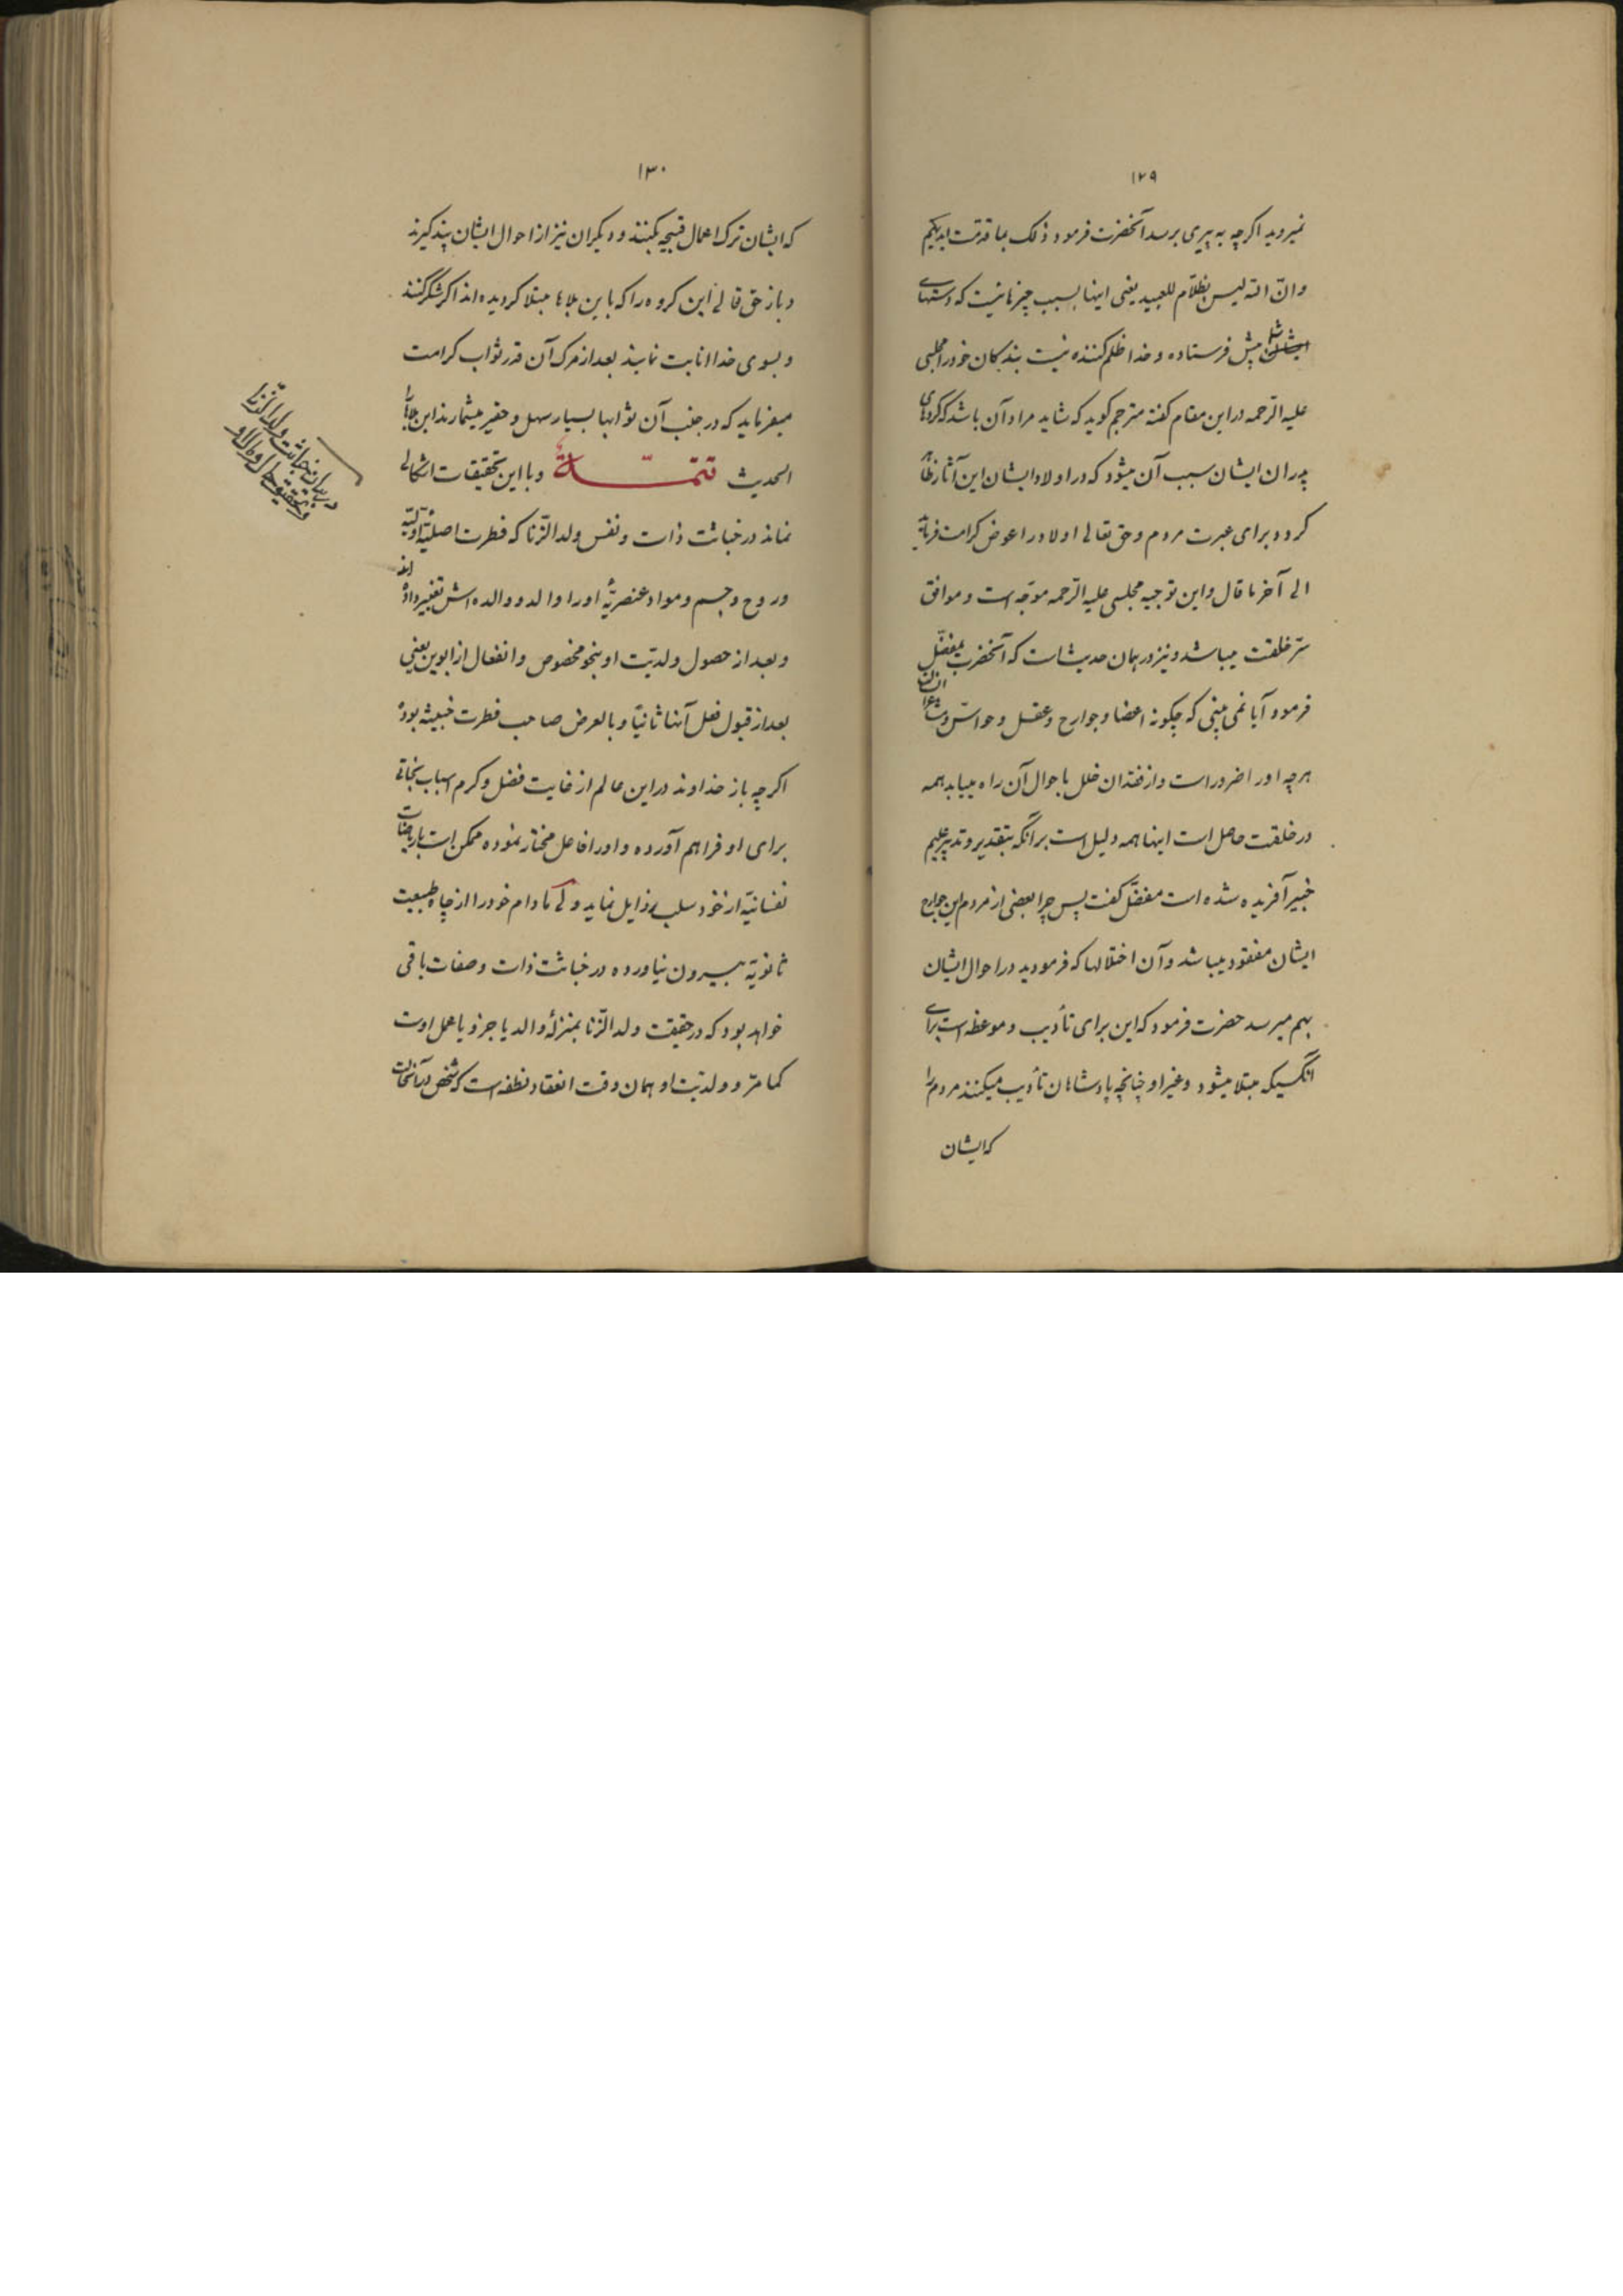 ۱۲۹
نمیروید اکرچه به پیری برسد آنحضرت فرمود ذلک بما قدمت ایدیکم
وانّ الله لیس بظلّام للعبید یعنی اینها بسبب چیزهائیست که دستهای
شما پیش فرستاده و خدا ظلم کننده نیست بندکان خود را مجلسی
علیه الرّحمه در این مقام کفته مترجم کوید که شاید مراد آن باشد که کردهای
پدران ایشان سبب آن میشود که در اولاد ایشان این آثار ظاهر
کردد برای عبرت مردم و حق تعالی اولاد را عوض کرامت فرماید
الی آخر ما قال و این توجیه مجلسی علیه الرّحمه موجّه است و موافق
سرّ خلقت میباشد و نیز در همان حدیث است که آنحضرت بمفضّل
فرمود آیا نمی بینی که چکونه اعضا و جوارح و عقل و حواسّ و
هرچه او را ضرور است و از فقدان خلل باحوال آن راه مییابد همه
در خلقت حاصل است اینها همه دلیل است بر آنکه بتقدیر و تدبیر علیم
خبیر آفریده شده است مفضّل کفت پس چرا بعضی از مردم این جوارح
ایشان مفقود میباشد و آن اختلالها که فرمودید در احوال ایشان
بهم میرسد حضرت فرمود که این برای تأدیب و موعظه است برای
آنکسیکه مبتلا میشود و غیر او چنانچه پادشاهان تأدیب میکنند مردم را
که ایشان
۱۳۰
که ایشان ترک اعمال قبیحه بکنند و دیکران نیز از احوال ایشان پند کیرند
و باز حق تعالی این کروه را که باین بلاها مبتلا کردیده اند اکر شکر کنند
و بسوی خدا انابت نمایند بعد از مرک آن قدر ثواب کرامت
میفرماید که در جنب آن ثوابها بسیار سهل و حقیر میشمارند این بلاها را
الحدیث تتمّة و با این تحقیقات اشکالی
نماند در خباثت ذات و نفس ولد الزّنا که فطرت اصلیّهٔ اوّلیّه
و روح و جسم و مواد عنصریّهٔ او را والد و والده اش تغییر داده اند
و بعد از حصول ولدیّت او بنحو مخصوص و انفعال از ابوین یعنی
بعد از قبول فعل آنها ثانیًا و بالعرض صاحب فطرت خبیثه بوده
اکرچه باز خداوند در این عالم از غایت فضل و کرم اسباب نجاتی
برای او فراهم آورده و او را فاعل مختار نموده ممکن است بریاضات
نفسانیّه از خود سلب رذایل نماید ولی مادام خود را از چاه طبیعت
ثانویّه بیرون نیاورده در خباثت ذات و صفات باقی
خواهد بود که در حقیقت ولد الزّنا بمنزلهٔ والد یا جزء یا عمل اوست
کما مرّ و ولدیّت او همان وقت انعقاد نطفه است که شخص در آنحالت
در بیان خباثت ولد الزّنا
و تحقیق حال و مآل او